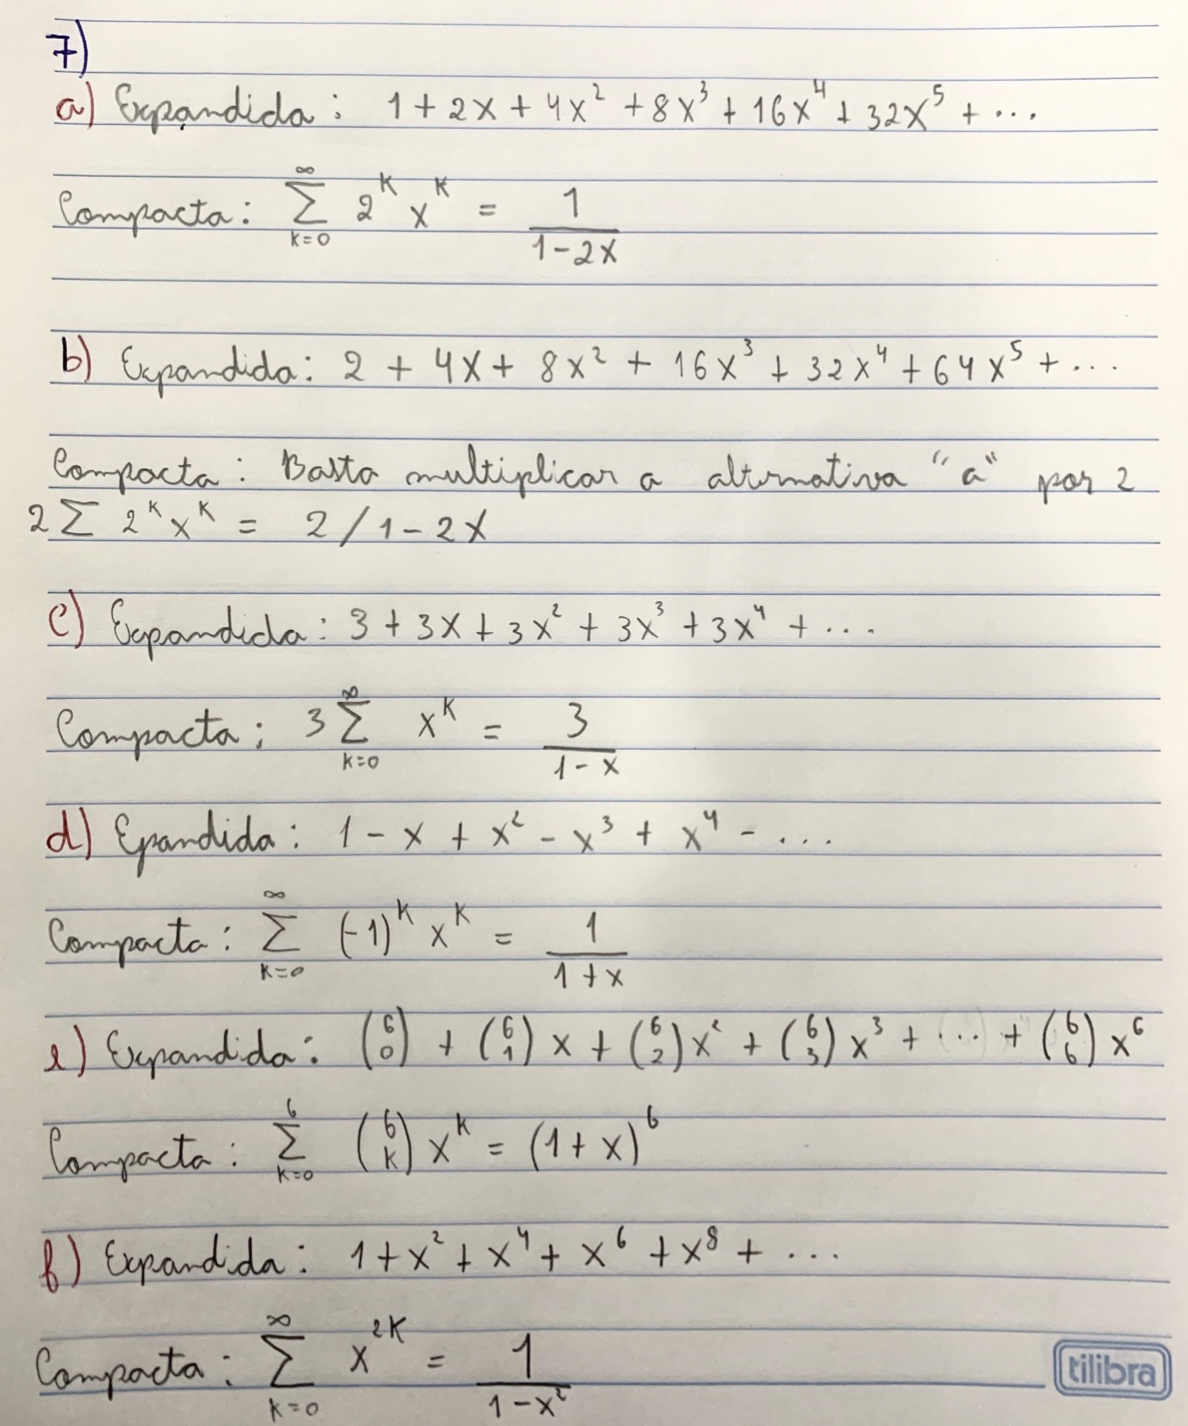 7)
a) Expandida: 1 + 2x + 4x² + 8x³ + 16x⁴ + 32x⁵ + ...
Compacta: ∞∑k=0 2ᵏ xᵏ = 1/(1-2x)
b) Expandida: 2 + 4x + 8x² + 16x³ + 32x⁴ + 64x⁵ + ...
Compacta: Basta multiplicar a alternativa "a" por 2
2∑ 2ᵏxᵏ = 2/1-2x
c) Expandida: 3 + 3x + 3x² + 3x³ + 3x⁴ + ...
Compacta: 3 ∞∑k=0 xᵏ = 3/(1-x)
d) Epandida: 1 - x + x² - x³ + x⁴ - ...
Compacta: ∞∑k=0 (-1)ᵏ xᵏ = 1/(1+x)
e) Expandida: (6 0) + (6 1)x + (6 2)x² + (6 3)x³ + ... + (6 6)x⁶
Compacta: 6∑k=0 (6 k) xᵏ = (1+x)⁶
f) Expandida: 1 + x² + x⁴ + x⁶ + x⁸ + ...
Compacta: ∞∑k=0 x²ᵏ = 1/(1-x²)
tilibra